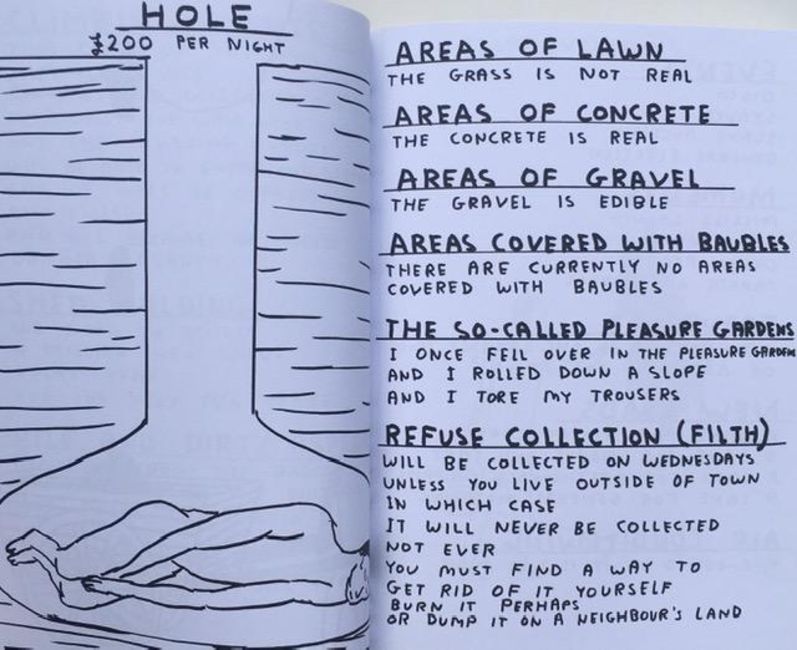 HOLE
£200 PER NIGHT
AREAS OF LAWN
THE GRASS IS NOT REAL
AREAS OF CONCRETE
THE CONCRETE IS REAL
AREAS OF GRAVEL
THE GRAVEL IS EDIBLE
AREAS COVERED WITH BAUBLES
THERE ARE CURRENTLY NO AREAS
COVERED WITH BAUBLES
THE SO-CALLED PLEASURE GARDENS
I ONCE FELL OVER IN THE PLEASURE GARDEN
AND I ROLLED DOWN A SLOPE
AND I TORE MY TROUSERS
REFUSE COLLECTION (FILTH)
WILL BE COLLECTED ON WEDNESDAYS
UNLESS YOU LIVE OUTSIDE OF TOWN
IN WHICH CASE
IT WILL NEVER BE COLLECTED
NOT EVER
YOU MUST FIND A WAY TO
GET RID OF IT YOURSELF
BURN IT PERHAPS
OR DUMP IT ON A NEIGHBOUR'S LAND